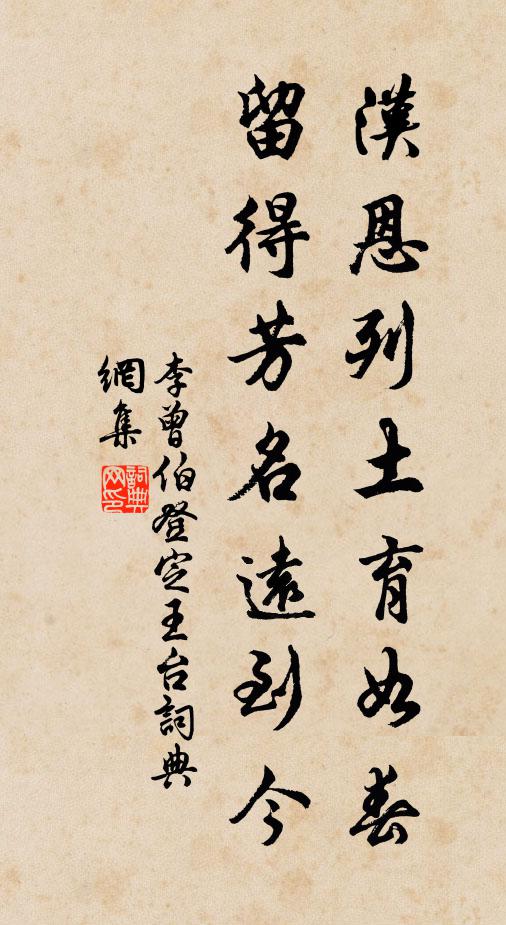 漢恩列土育如春
留得芳名遠到今
李曾伯登定王台詞典
網集
詞典網印